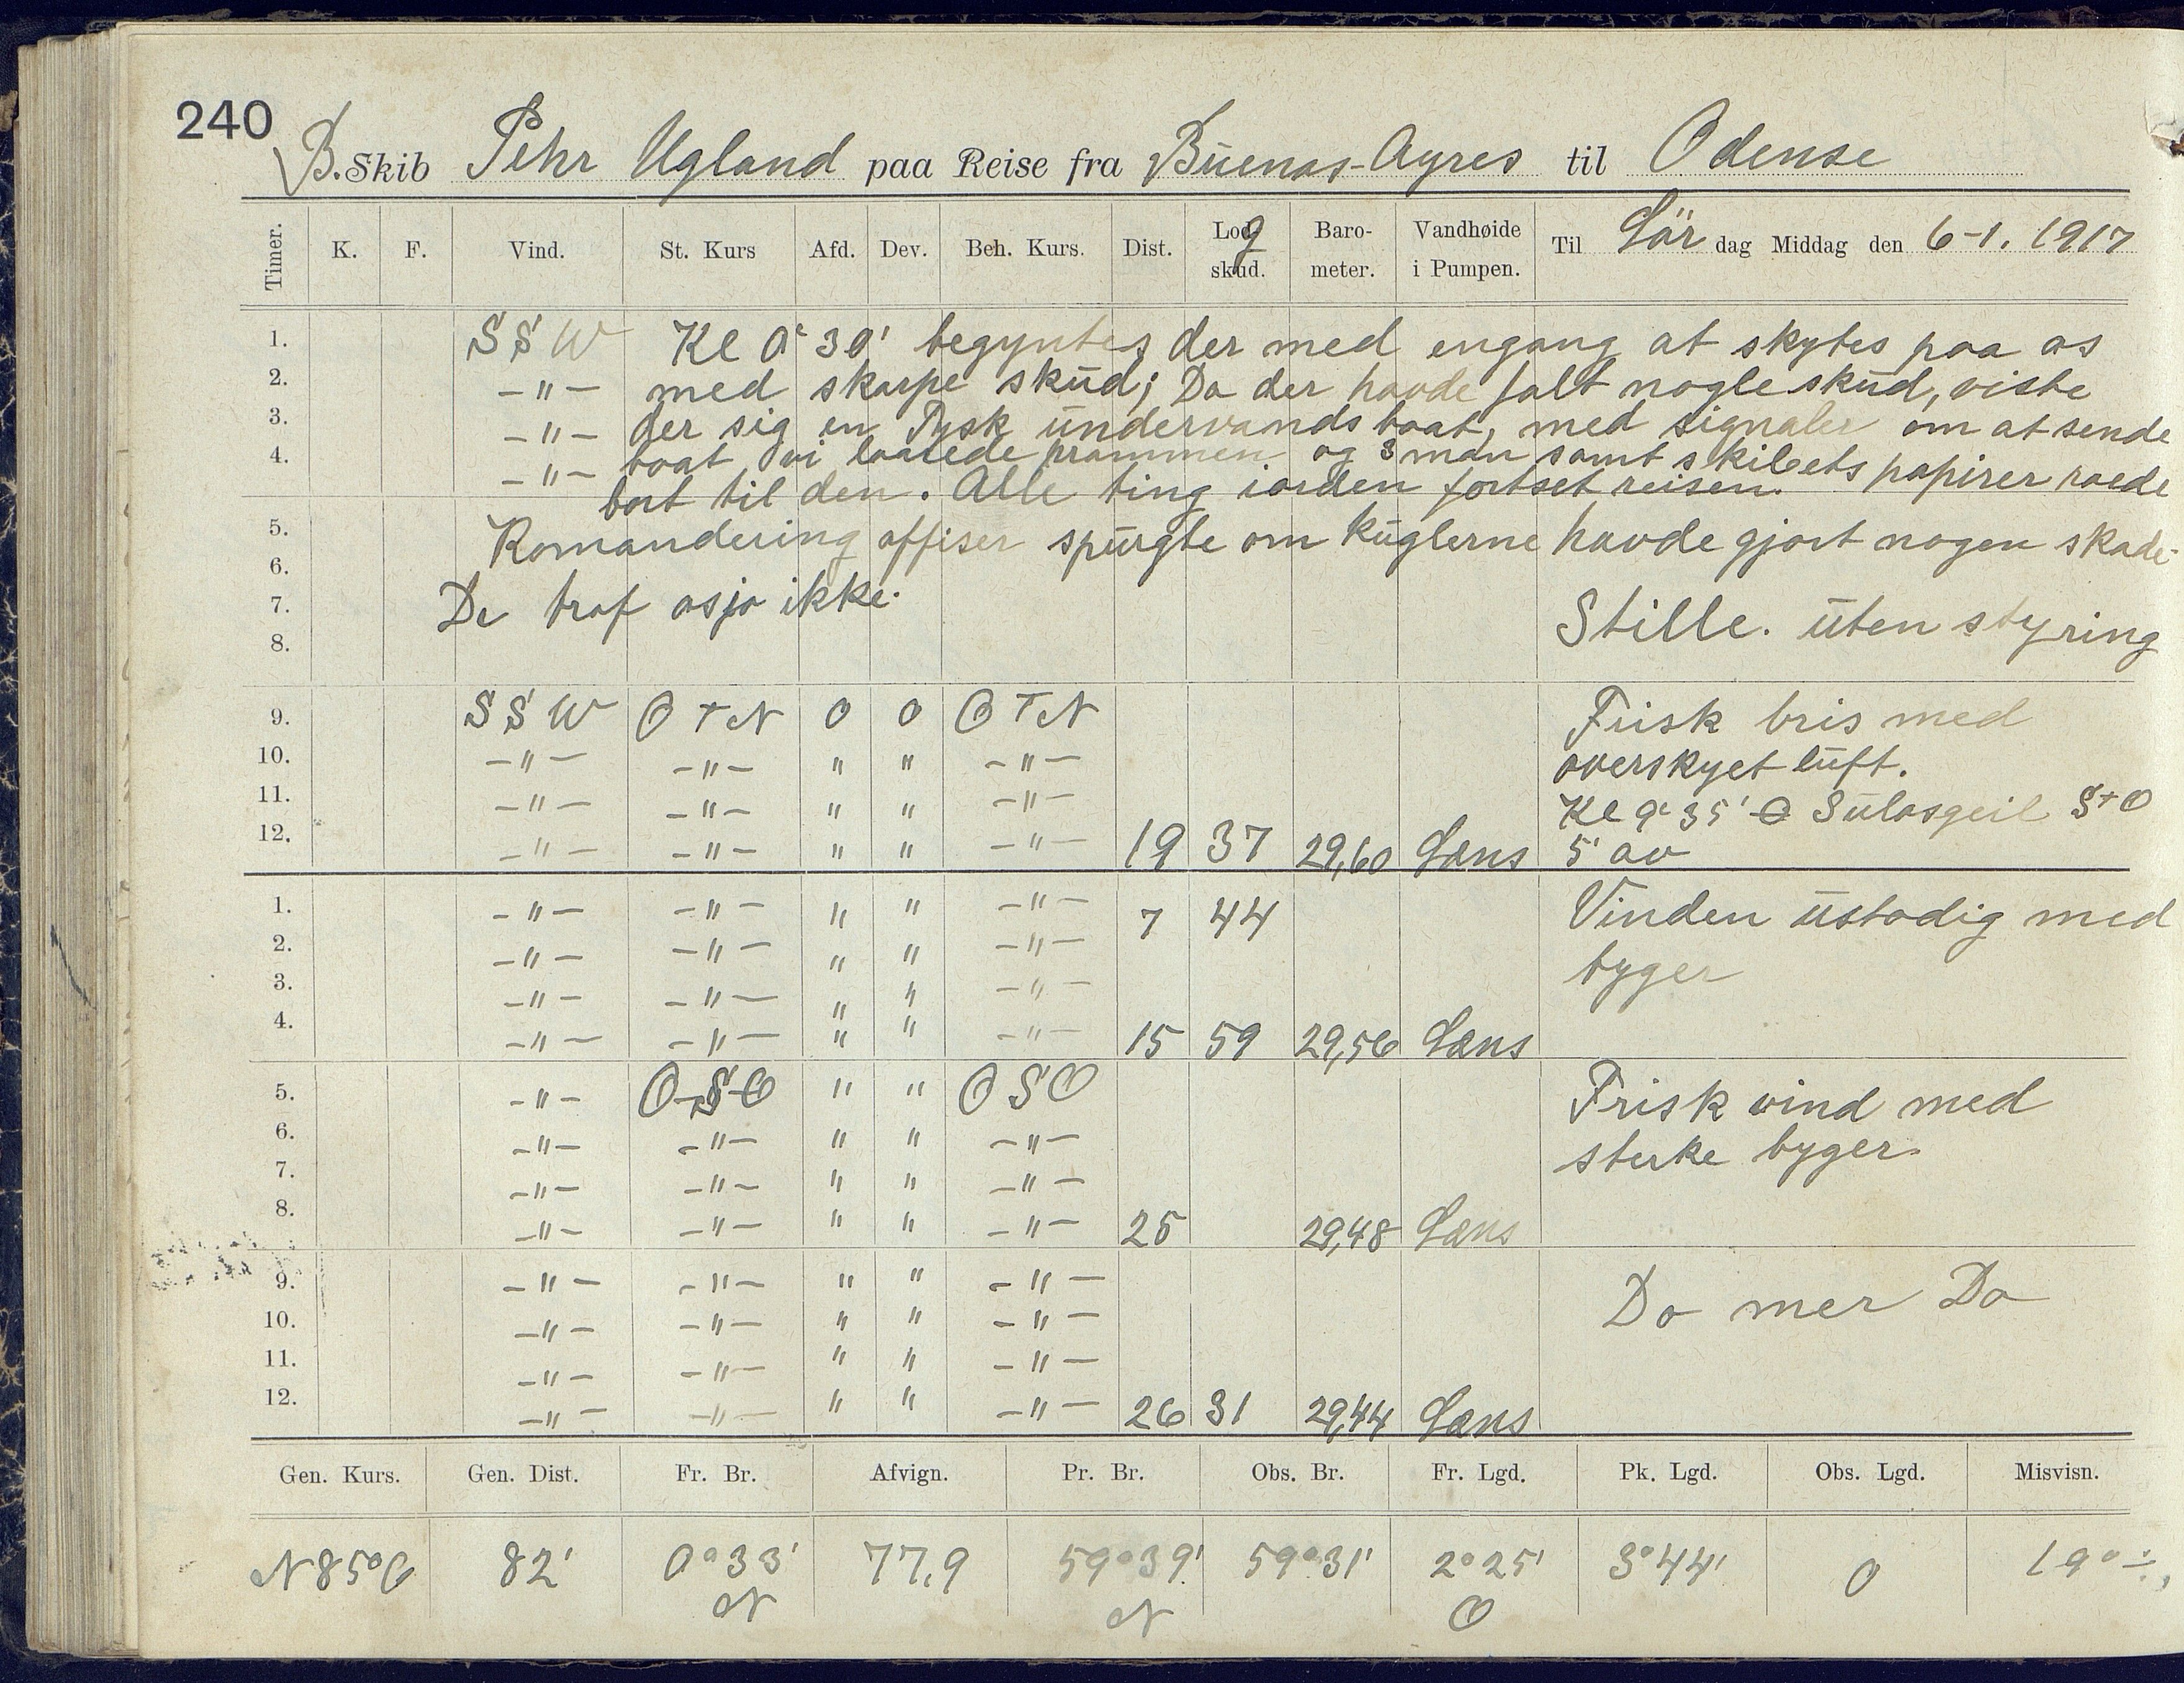 240
B. Skib Pehr Ugland paa Reise fra Buenas-Ayres til Odense
Timer. K. F. Vind. St. Kurs Afd. Dev. Beh. Kurs. Dist. Log skud. Baro- meter. Vandhøide i Pumpen. Til Lör dag Middag den 6-1. 1917
1. SSW Kl 0' 30' begyntes der med engang at skytes paa os
2. -"- med skarpe skud; Da der havde falt nogle skud, viste
3. -"- der sig en Tysk undervandsbaat, med signaler om at sende
4. -"- boat vi laarede prammen og 3 man samt skibets papirer roede
bort til den. Alle ting iorden fortset reisen.
5. Komandering offiser spurgte om kuglerne havde gjort nogen skade-
6.
7. De traf osjo ikke. Stille. uten styring
8.
9. SSW OTN 0 0 OTN Frisk bris med
10. -"- -"- " " -"- overskyet luft.
11. -"- -"- " " -"- Kl 9' 35' Sulasgeil STO
12. -"- -"- " " -"- 19 37 29,60 Læns 5' av
1. -"- -"- " " -"- 7 44 Vinden ustadig med
2. -"- -"- " " -"- byger
3. -"- -"- " " -"-
4. -"- -"- " " -"- 15 59 29,56 Læns
5. -"- O-S-O " " OSO Frisk vind med
6. -"- -"- " " -"- sterke byger.
7. -"- -"- " " -"-
8. -"- -"- " " -"- 25 29,48 Læns
9. -"- -"- " " -"- Do mer Do
10. -"- -"- " " -"-
11. -"- -"- " " -"-
12. -"- -"- " " -"- 26 31 29,44 Læns
Gen. Kurs. Gen. Dist. Fr. Br. Afvign. Pr. Br. Obs. Br. Fr. Lgd. Pk. Lgd. Obs. Lgd. Misvisn.
N85°O 82' 0°33' 77,9 59°39' 59°31' 2°25' 3°44' 0 19°÷
N N O